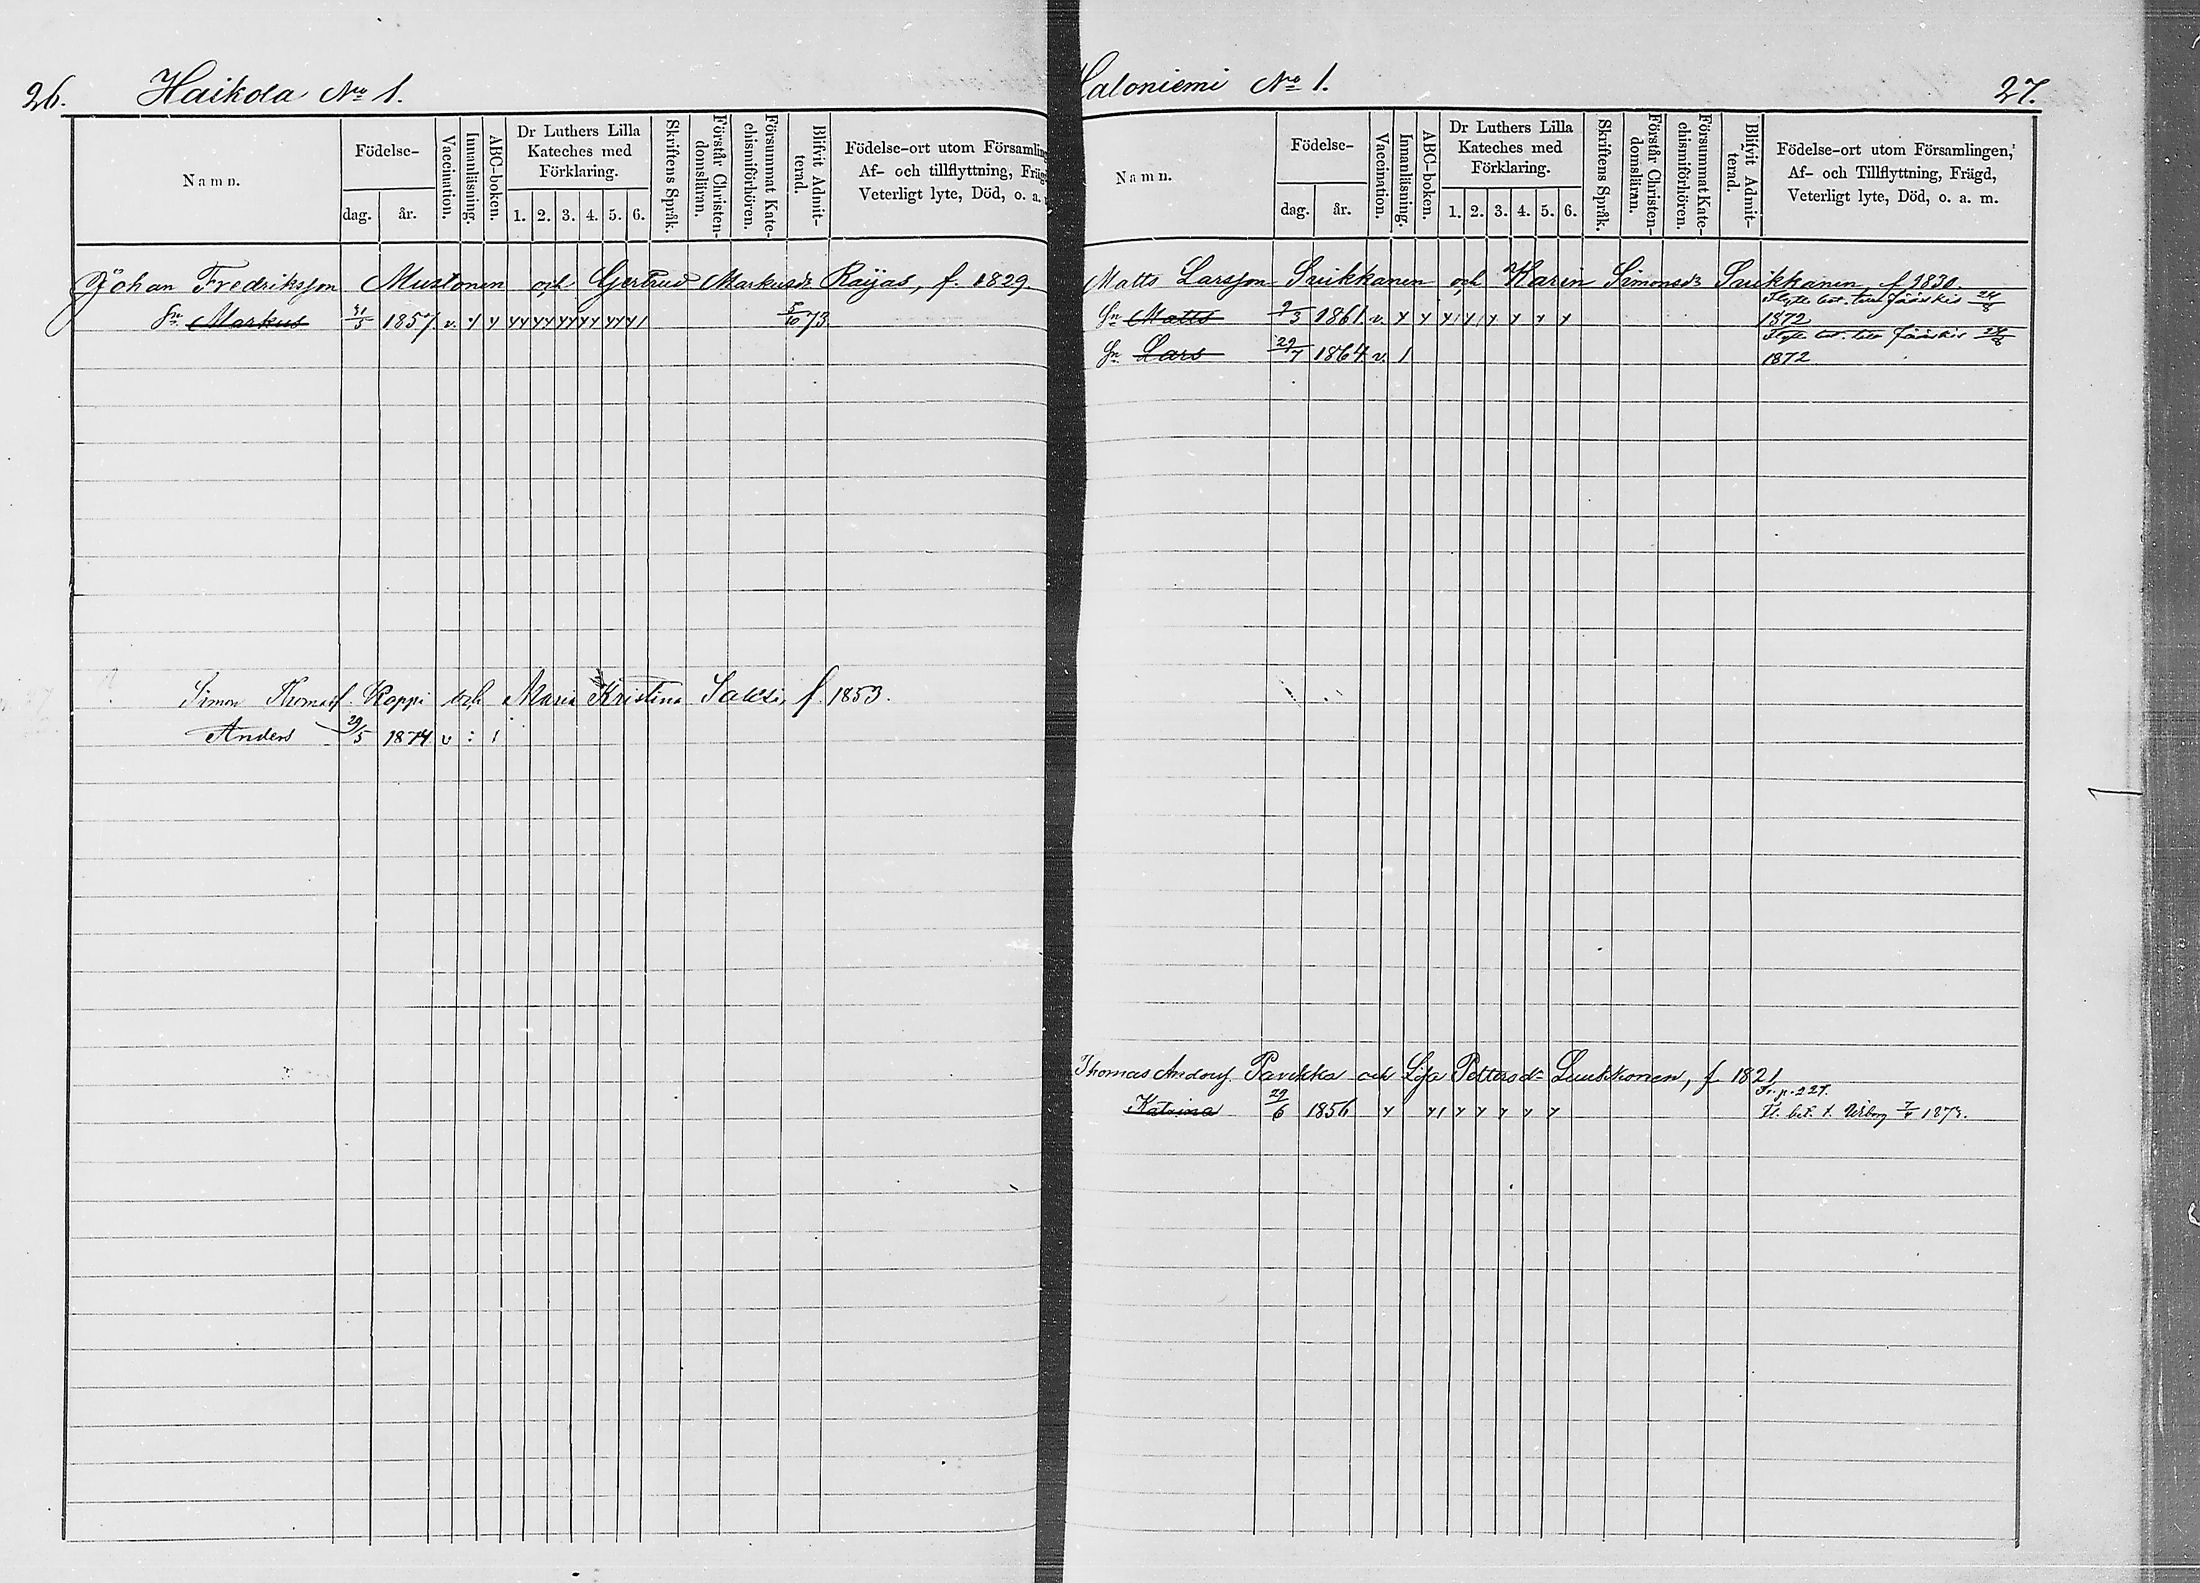 26. Haikola No 1.
Namn.
Födelse-
dag. år.
Vaccination.
Innanläsning.
ABC-boken.
Dr Luthers Lilla
Kateches med
Förklaring.
1. 2. 3. 4. 5. 6.
Skriftens Språk.
Förstår Christen-
domsläran.
Försummat Kate-
chismiförhören.
Blifvit Admit-
terad.
Födelse-ort utom Församling
Af- och tillflyttning, Fräg
Veterligt lyte, Död, o. a.
Johan Fredriksson Mustonen och Gertrud Markusdr Raijas, f. 1829.
Sn Markus 31/5 1857 v. y y yy yy yy yy yy y1 5/10 73
Simon Thomasf. Roppi och Maria Kristina Saksi f. 1853.
Anders 29/5 1874 v : 1
Haloniemi No 1. 27.
Namn.
Födelse-
dag. år.
Vaccination.
Innanläsning.
ABC-boken.
Dr Luthers Lilla
Kateches med
Förklaring.
1. 2. 3. 4. 5. 6.
Skriftens Språk.
Förstår Christen-
domsläran.
Försummat Kate-
chismiförhören.
Blifvit Admit-
terad.
Födelse-ort utom Församlingen,
Af- och Tillflyttning, Frägd,
Veterligt lyte, Död, o. a. m.
Matts Larsson Suikkanen och Karin Simonsdr Suikkanen, f. 1830.
Sn Matts 1861 v. y y y1 y1 y y y y
Jääskis 24/8
1872
Sn Lars 29/7 1864 v. 1
Jääskis
1872
Thomas Andersf. Pavikka och Lisa Pettersdr Luukkonen, f. 1821
Tr. p. 227.
Katrina 29/6 1856 y y1 y y y y y Fl. bet. t. Wiborg 1873.